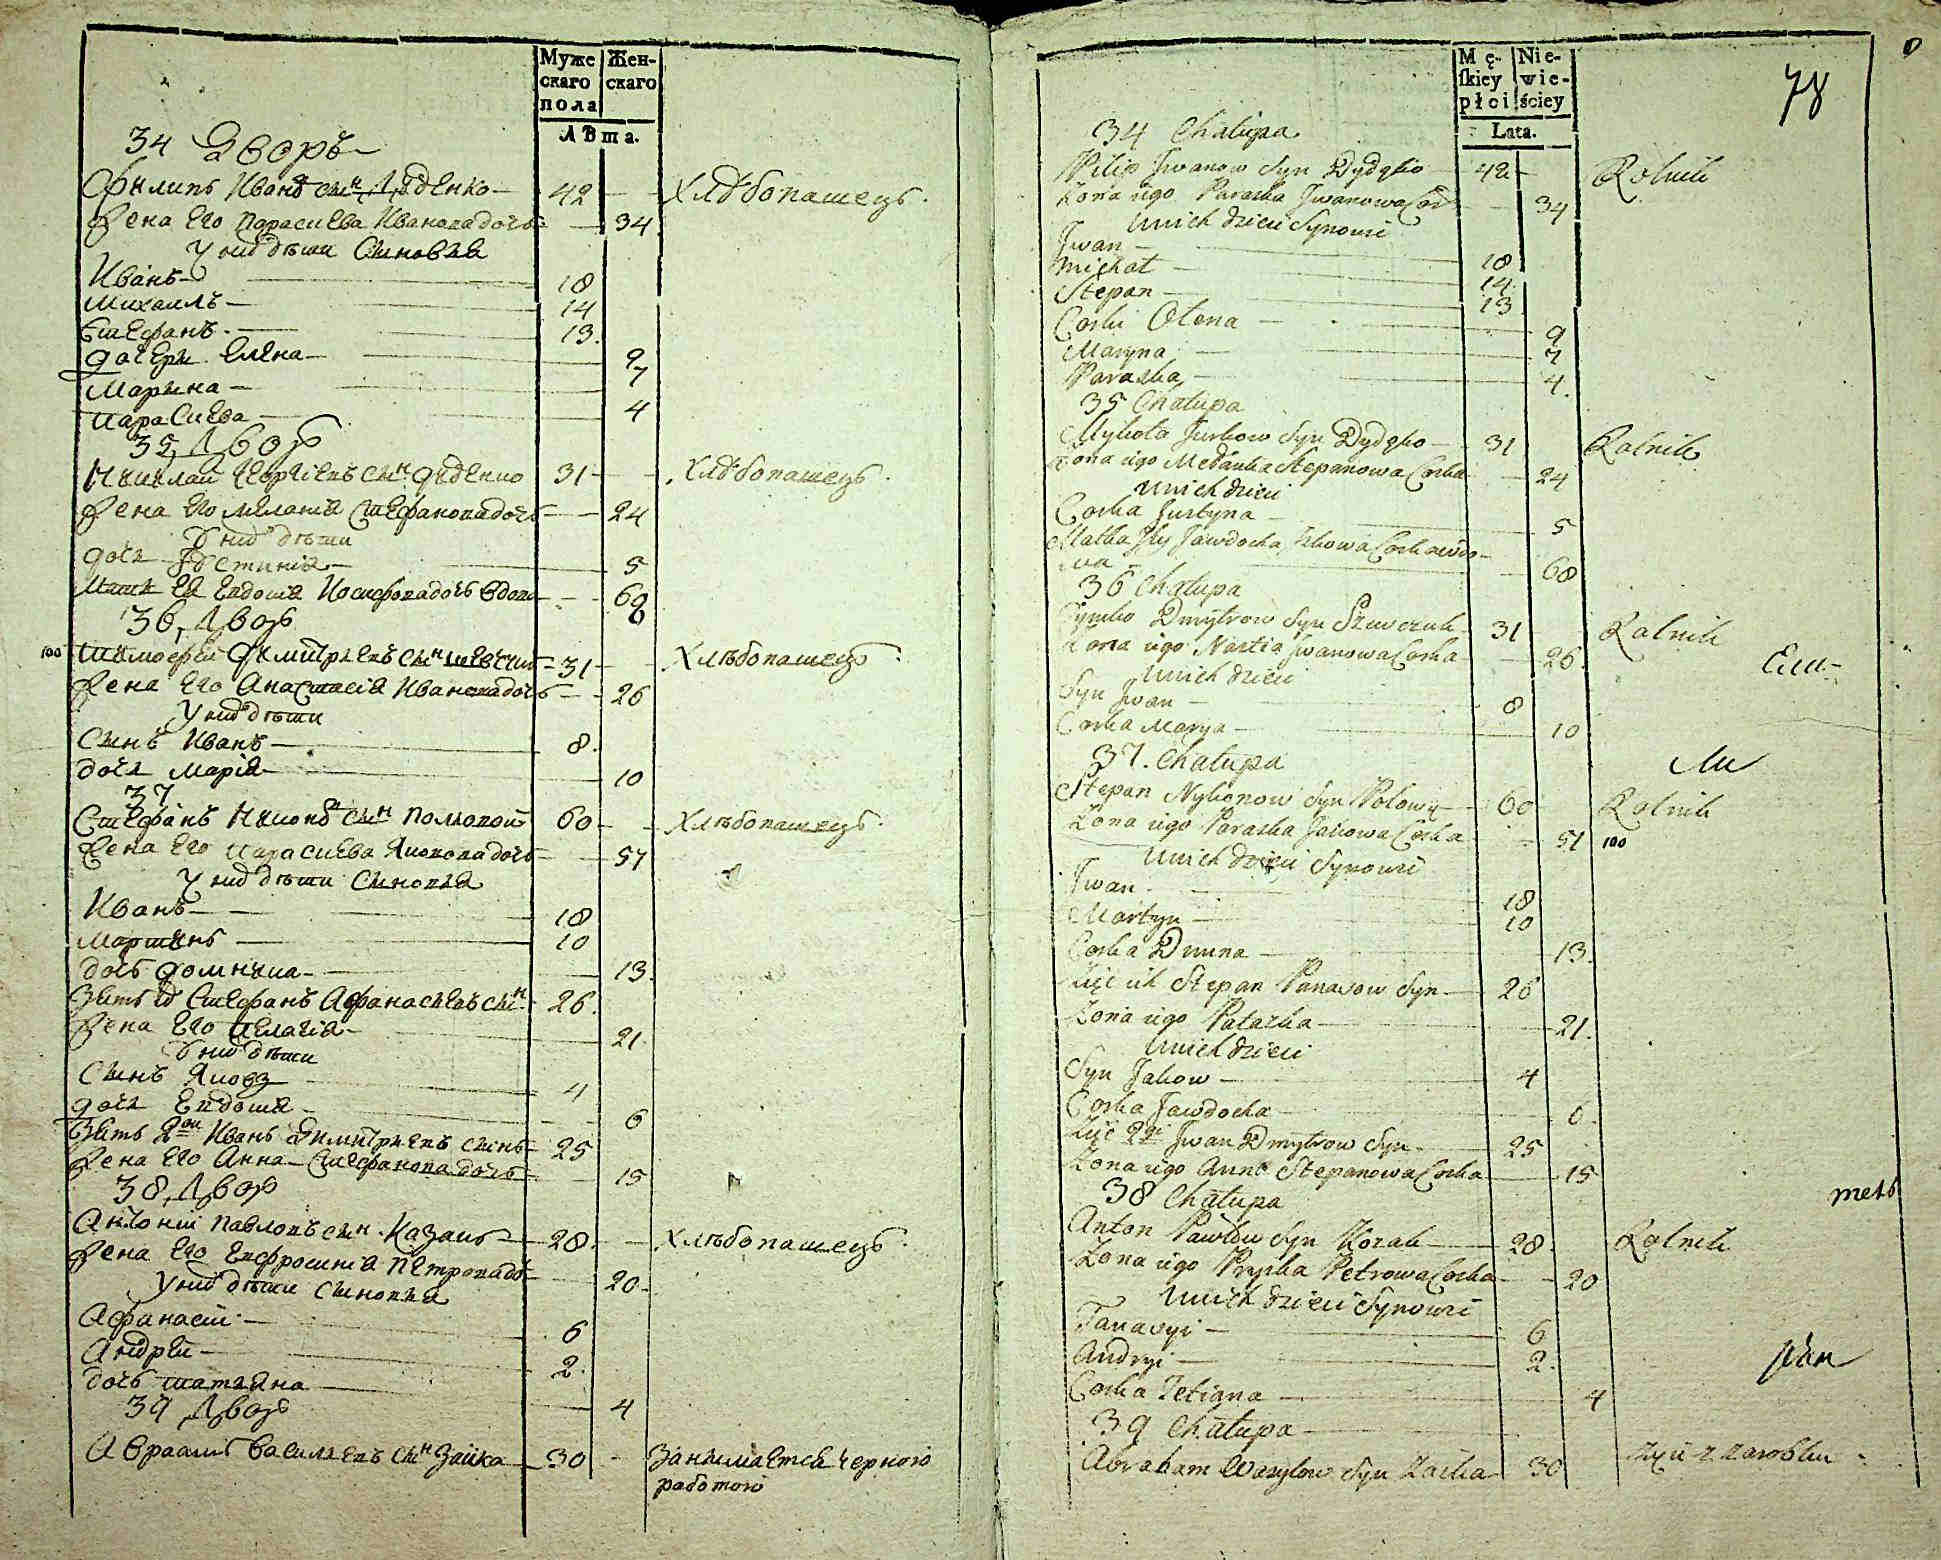 Муже
скаго
пола
Жен-
скаго
Лѣта.
34 Дворъ
Филипъ Ивановъ сынъ Дѣденко 42 Хлѣбопашецъ.
Жена Его Параскева Иванова дочь 34
У нихъ дѣти Сыновья
Иванъ 18
Михаилъ 14
Стефанъ 13.
дочери Елена 9
Марина 7
Параскева 4
35 Дворъ
Николай Георгіевъ сынъ Дѣденко 31 Хлѣбопашецъ.
Жена Его Меланія Стефанова дочь 24
У нихъ дѣти
дочь Юстинія 5
Мать Ея Евдокія Иосифова дочь вдова 68
36 Дворъ
100 Тимофей Димитріевъ сынъ Шевчикъ 31 Хлѣбопашецъ.
Жена Его Анастасія Иванова дочь 26
У нихъ дѣти
Сынъ Иванъ 8.
дочь Марія 10
37
Стефанъ Никоновъ сынъ Половой 60 Хлѣбопашецъ.
Жена Его Параскева Яковова дочь 57
У нихъ дѣти Сыновья
Иванъ 18
Мартынъ 10
дочь Домникіа 13.
Зять ихъ Стефанъ Афанасіевъ сынъ 26.
Жена Его Пелагія 21.
У нихъ дѣти
Сынъ Яковъ 4
дочь Евдокія 6
Зять 2ой Иванъ Димитріевъ сынъ 25
Жена Его Анна Стефанова дочь 15
38 Дворъ
Антоній Павловъ сын Казакъ 28. Хлѣбопашецъ.
Жена Его Евфросинія Петрова дочь 20
У нихъ дѣти сыновья
Афанасій 6
Андрей 2.
дочь Татіяна 4
39 Дворъ
Авраамъ Василіевъ сынъ Заика 30 Занимается черною
работою
Mę-
ſkiey
płci
Nie-
wie-
ściey
Lata.
78
34 Chałupa
Pilip Jwanow Syn Dydęko 42 Rolnik
Zona iego Paraska Jwanowa Cor 34
Unich dzieci Synowi
Jwan 18
Michał 14
Stepan 13
Corki Olena 9
Maryna 7
Paraska 4.
35 Chałupa
Mykoła Jurkow Syn Dydęko 31 Rolnik
Zona iego Mełanka Stepanowa Corka 24
Unich dzieci
Corka Justyna 5
Matka Jey Jawdocha Jzkowa Corka wdo-
wa 68
36 Chałupa
Tymko Dmytrow Syn Szewczuk 31 Rolnik
Zona iego Nastia Jwanowa Corka 26.
Unich dzieci
Syn Jwan 8
Corka Marya 10
37. Chałupa
Stepan Nykonow Syn Połowy 60 Rolnik
Zona iego Paraska Jakowa Corka 57 100
Unich dzieci Synowi
Jwan 18
Martyn 10
Corka Dmna 13.
Zięć ich Stepan Panasow Syn 26
Zona iego Palazka 21.
Unich dzieci
Syn Jakow 4
Corka Jawdocha 6.
Zięć 2gi Jwan Dmytrow Syn 25
Zona iego Anna Stepanowa Corka 15
38 Chałupa
Anton Pawłow Syn Kozak 28. Rolnik
Zona iego Pryska Petrowa Corka 20
Unich dzieci Synowi
Panasyi 6
Andryi 2.
Corka Tetiana 4
39 Chałupa
Abraham Wasylow Syn Zaika 30 żyie z zarobku